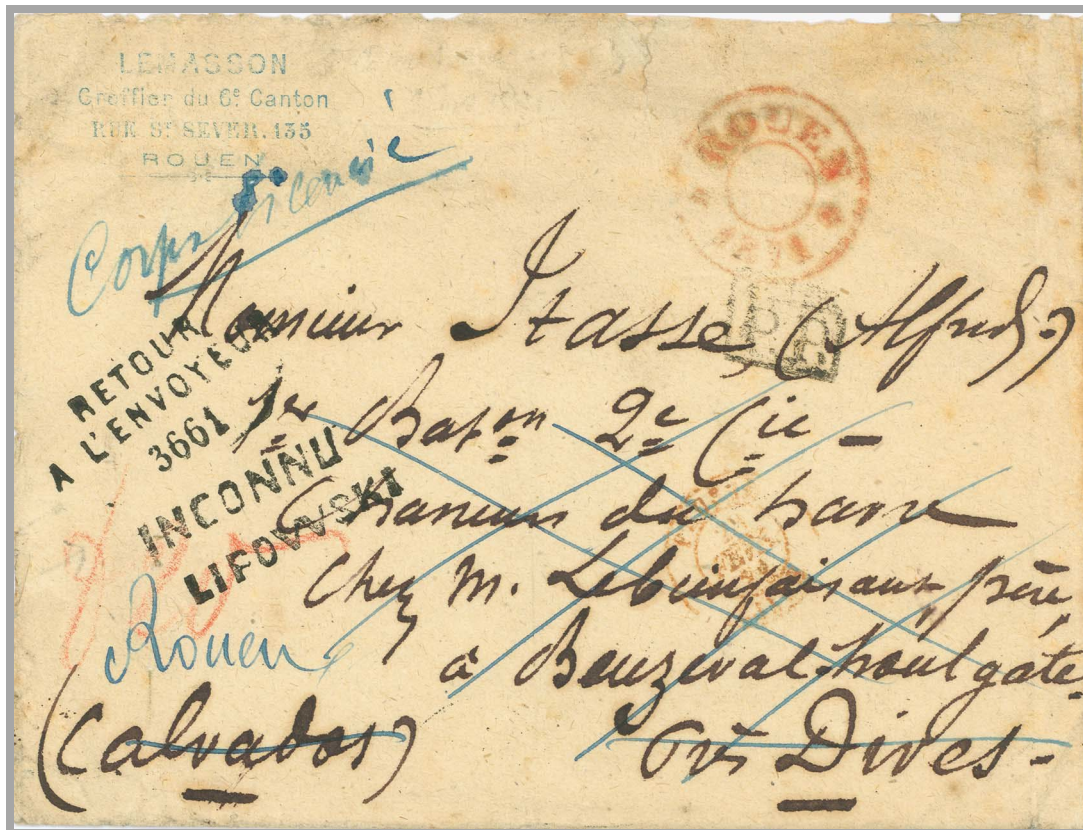 LEMASSON
Greffier du 6e Canton
RUE St SEVER. 135
ROUEN
ROUEN
1871
Corps
P.P.
Monsieur Itasse (Alfred)
RETOUR
A L'ENVOYEUR
3661
INCONNU
LIPOWSKI
1er Baton 2e Cie -
du havre
Chez M. Lebienfaisant père
Rouen
à Beuzeval-houlgate
(Calvados) Près Dives -